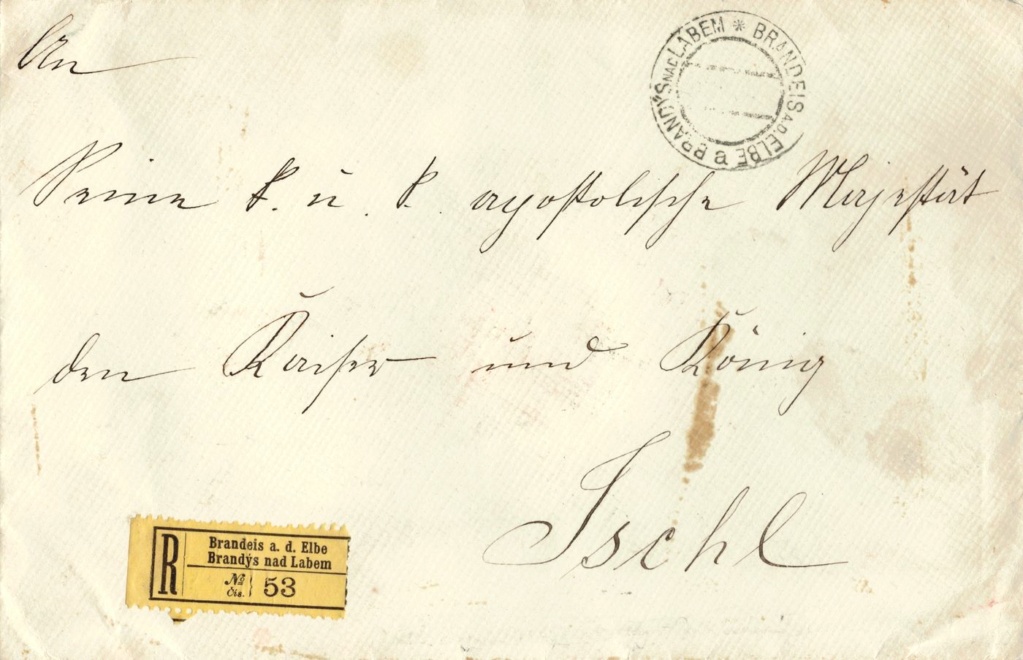 An
BRANDÝS NAD LABEM * BRANDEIS A.D. ELBE a
Seine k. u. k. apostolische Majestät
den Kaiser und König
Ischl
R
Brandeis a. d. Elbe
Brandýs nad Labem
№
Čís. 53